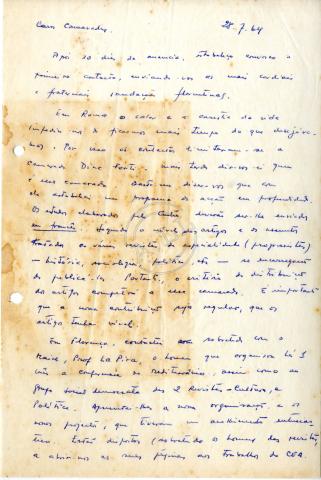 Caros Camaradas, 28.7.64
Após 20 dias de ausencia, restabeleço convosco o
primeiro contacto, enviando-vos as mais cordiais
e fraternais saudações florentinas.
Em Roma o calor e a carestia da vida
impediu-nos de ficarmos mais tempo do que desejáva-
mos. Por isso os contactos limitaram-se a
camarada Dina Forti. mais tarde dir-vos-ei quem
é essa camarada. Basta-me dizer-vos que com
ela estabeleci um programa de acção em profundidade.
Os estudos elaborados pelo Centro deverão ser-lhe enviados
em francês. Segundo o nível dos artigos e os assuntos
tratados as várias revistas da especialidade (progressistas)
— história, sociologia, política etc — se encarregarão
de publicá-los. Portanto, o critério da distribuição
dos artigos compete a essa camarada. É importante
que a nossa contribuição seja regular, que os
artigos tenham nível.
Em Florença, contactei com
Maire, Prof. La Pira, o homem que organizou há
a conferencia do Mediterrâneo, assim como um
grupo social democrata das 2 Revistas - Cultura, e
Política. Apresentei-lhes a nossa organização, e os
nossos projectos, que tiveram um acolhimento
Estão dispostos os homens das revistas,
a abrir-nos as suas páginas aos trabalhos do CEA.